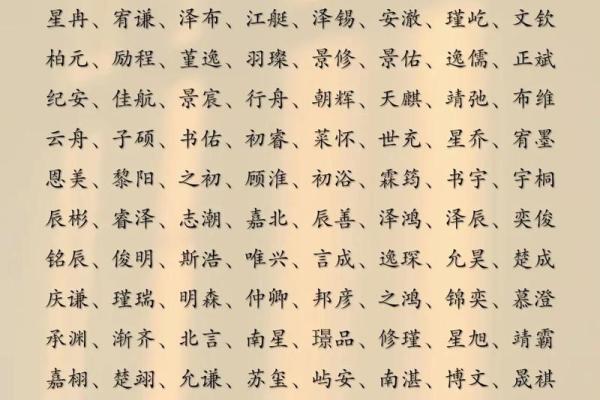 星冉、宥谦、泽布、江艇、泽锡、安澈、瑾屹、文钦
柏元、励程、堇逸、羽璨、景修、景佑、逸儒、正斌
纪安、佳航、景宸、行舟、朝辉、天麒、靖弛、布维
云舟、子硕、书佑、初睿、菜怀、世充、星乔、宥墨
恩美、黎阳、之初、顾淮、初浴、霖筠、书宇、宇桐
辰彬、睿泽、志潮、嘉北、辰善、泽鸿、泽辰、奕俊
铭辰、俊明、斯浩、唯兴、言成、逸琛、允昊、楚成
庆谦、瑾瑞、明森、仲卿、邦彦、之鸿、锦奕、慕澄
承渊、渐齐、北言、南星、璟品、修瑾、星旭、靖霸
嘉栩、楚翊、允谦、苏玺、屿安、南湛、博文、晟祺